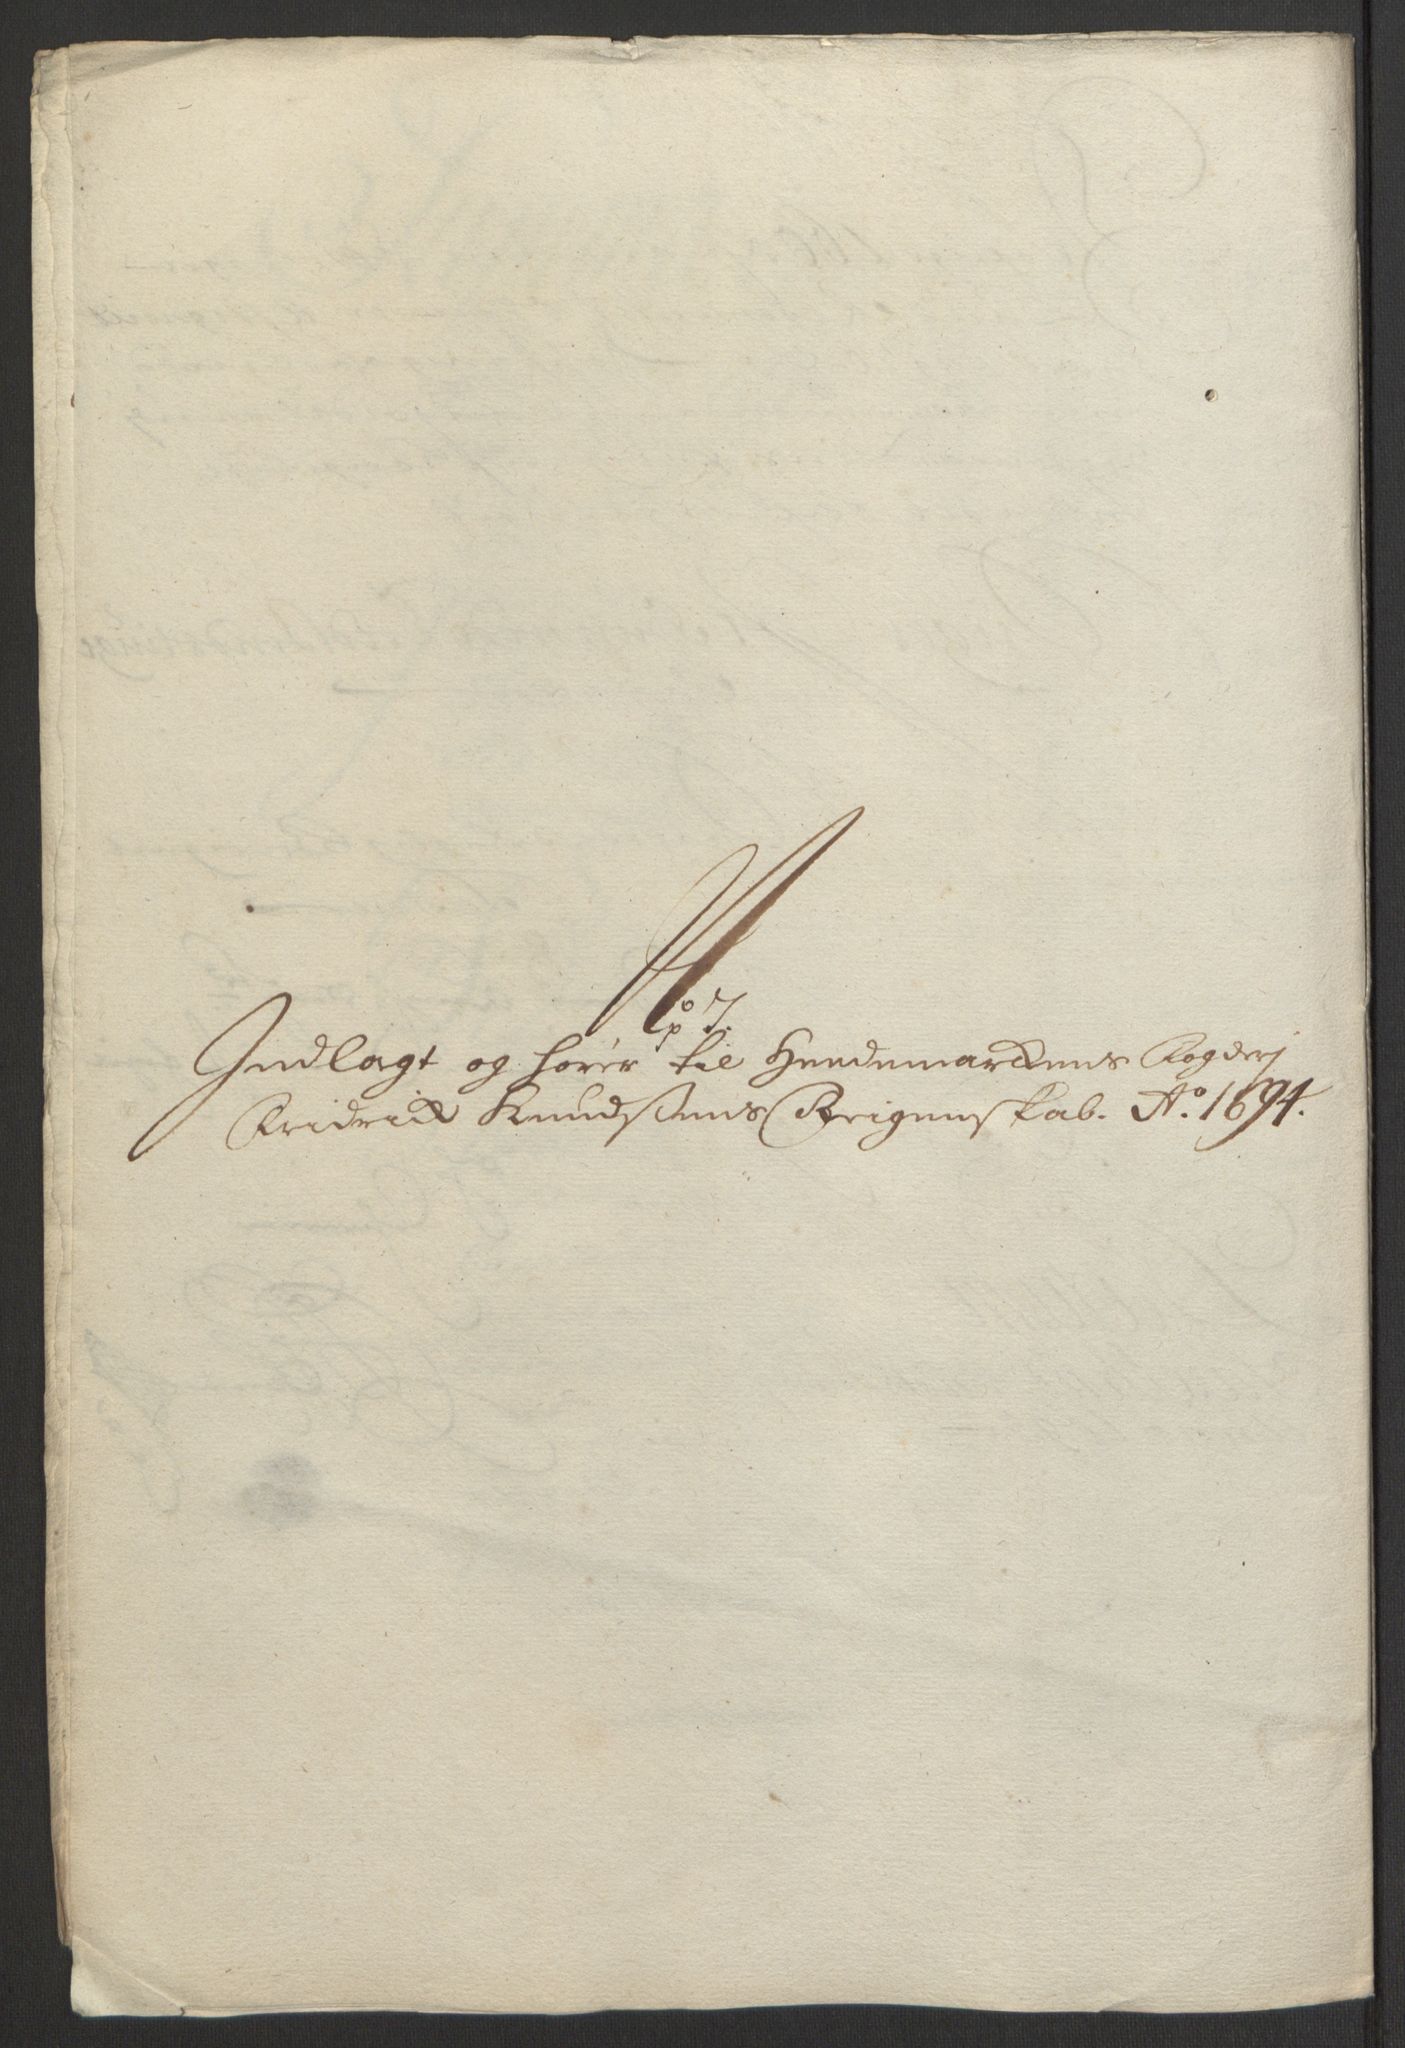 No 7.
Indlagt og hører til Heedemarckens Fogderj
Fridrick Knudsens Reigenskab. Ao. 1694.